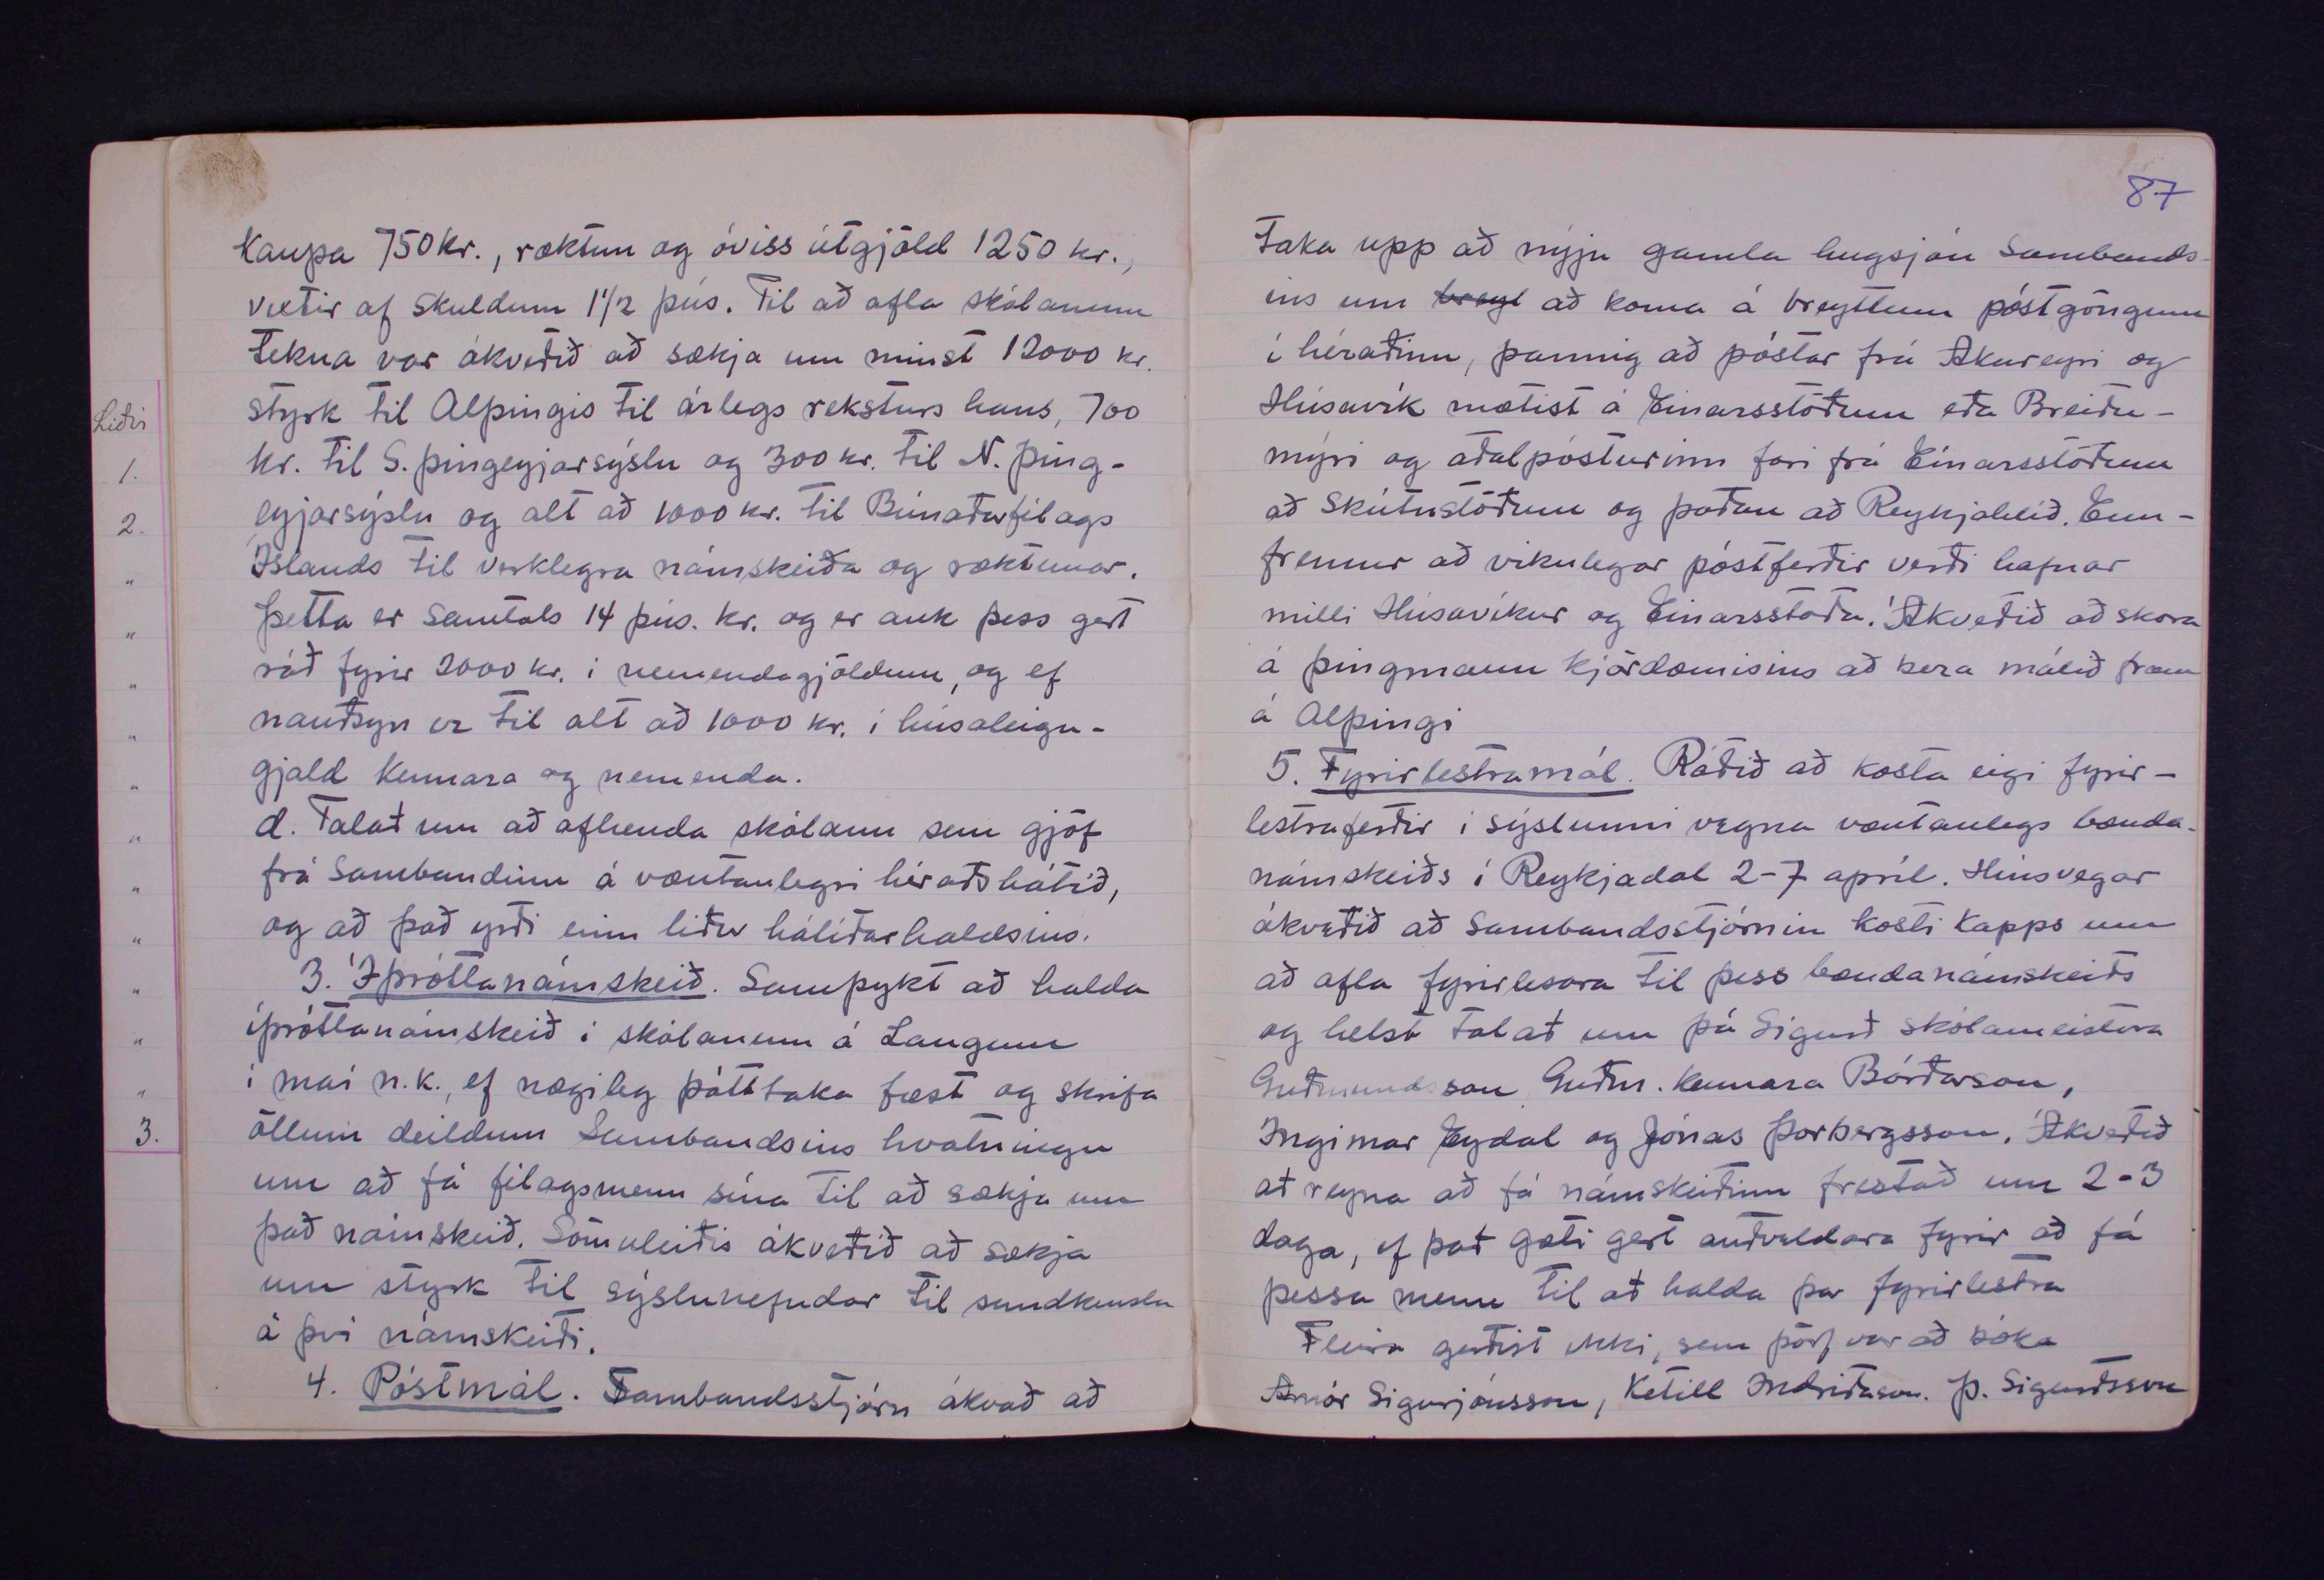 Liðir
1.
2.
"
"
"
"
"
"
"
"
"
"
"
3.
kaupa 750 kr., ræktun og óviss útgjöld 1250 kr.,
vextir af skuldum 1 1/2 þús. Til að afla skólanum
tekna var ákveðið að sækja um minst 12000 kr.
styrk til Alþingis til árlegs reksturs hans, 700
kr. til S. þingeyjarsýslu og 300 kr. til N. þing-
eyjarsýslu og alt að 1000 kr. til Búnaðarfélags
Íslands til verklegra námskeiða og ræktunar.
Þetta er samtals 14 þús. kr. og er auk þess gert
ráð fyrir 2000 kr. í nemendagjöldum, og ef
nauðsyn er til alt að 1000 kr. í húsaleigu-
gjald kennara og nemenda.
d. Talað um að afhenda skólann sem gjöf
frá Sambandinu á væntanlegri héraðshátíð,
og að það yrði einn liður hátíðarhaldsins.
3. Íþróttanámskeið. Samþykt að halda
íþróttanámskeið í skólanum á Laugum
í maí n.k., ef nægileg þátttaka fæst og skrifa
öllum deildum Sambandsins hvatningu
um að fá félagsmenn sína til að sækja um
það námskeið. Sömuleiðis ákveðið að sækja
um styrk til sýslunefndar til sundkenslu
á því námskeiði.
4. Póstmál. Sambandsstjórn ákvað að
87
taka upp að nýju gamla hugsjón Sambands-
ins um breyt að koma á breyttum póstgöngum
í héraðinu, þannig að póstar frá Akureyri og
Húsavík mætist á Einarsstöðum eða Breiðu-
mýri og aðalpósturinn fari frá Einarsstöðum
að Skútustöðum og þaðan að Reykjahlíð. Enn-
fremur að vikulegar póstferðir verði hafnar
milli Húsavíkur og Einarsstaða. Ákveðið að skora
á þingmann kjördæmisins að bera málið fram
á Alþingi
5. Fyrirlestramál. Ráðið að kosta eigi fyrir-
lestraferðir í sýslunni vegna væntanlegs bænda-
námskeiðs í Reykjadal 2-7 apríl. Hinsvegar
ákveðið að Sambandsstjórnin kosti kapps um
að afla fyrirlesara til þess bændanámskeiðs
og helst talað um þá Sigurð skólameistara
Guðmundsson Guðm. kennara Bárðarson,
Ingimar Eydal og Jónas Þorbergsson. Ákveðið
að reyna að fá námskeiðinu frestað um 2-3
daga, ef það gæti gert auðveldara fyrir að fá
þessa menn til að halda þar fyrirlestra
Fleira gerðist ekki, sem þörf var að bóka
Arnór Sigurjónsson, Ketill Indriðason. Þ. Sigurðsson